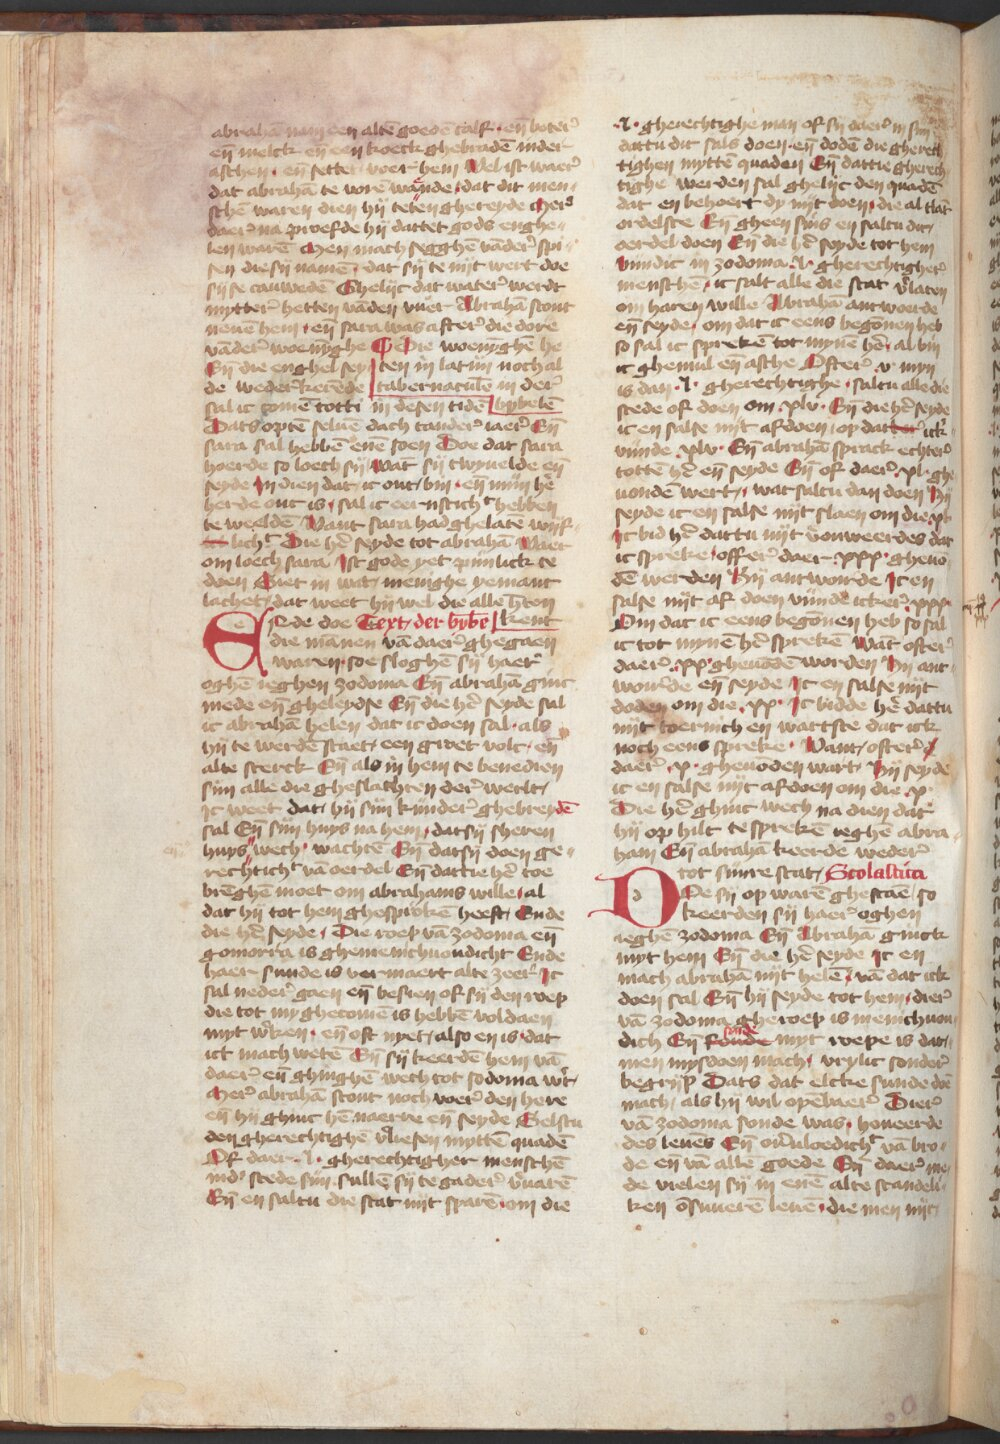 abrahā nam een altē goedē calf · en̄ boter᷒
en̄ melck en̄ een koeck ghebradē inder
asschen · en̄ settet voer hem Wel ist waer᷒
dat abrahā te vorē wānde · dat dit men⸗
schē waren dien hij tetēn ghereyde Mer᷒
daer᷒ na proefde hij dattet gods enghe⸗
len warē Men mach segghē vāder᷒ spi⸗
sen die sij namē · dat sij te nijt wert doe
sij se cauwedē Ghelijc dat water᷒ werdt
mytter᷒ hetten vāden vuer᷒ Abrahā stont
neuē hem · en̄ sara was after᷒ die dore
vāder᷒ woenȳghe ¶ Die woenȳghē he
En̄ die enghel sey ten in latijn noch al
de weder᷒kerēde tabernaculē in der᷒
sal ic comē totti in desen tidē bybelē
Dats optē seluē dach tander᷒ iaer᷒ En̄
sara sal hebbē enē soen Doe dat sara
hoerde so loech sij Wāt sij twyuelde en̄
seyde In dien dat ic out bin · en̄ mijn he
herde out is · sal ic eernstich᷒ hebben
te weeldē Want sara had ghelatē wijf⸗
lich᷒ Die hē seyde tot abrahā Waer
om loech sara Ist gode yet pijnlick te
doen Siet in wat menighe yemant
lachet dat weet hij wel die alle h̄ten
Erde doe Text der bybē kent
die mānen vā daer᷒ ghegaen
waren · soe sloghē sij haer᷒
oghē ieghen zodoma En̄ abrahā ginc
mede en̄ gheleydse En̄ die hē seyde sal
ic abrahā helen dat ic doen sal · als
hij te werdē staet een groet volc · en̄
alte sterck En̄ als in hem te benedien
sijn alle die gheslachten der᷒ werlt
Ic weet dat hij sijn kijnder᷒ ghebieydē
sal En̄ sijn huys na hem · dat sij sheren
huys wech wachtē En̄ dat sij doen ge⸗
rechtich᷒ vā oerdel En̄ dattie hē toe
brēghē moet om abrahams wille · al
dat hij tot hem ghesprokē heeft Ende
die hē seyde · Die roep vā zodoma en̄
gomorra is ghemenichuoudicht Ende
haer sunde is vermaert alte zeer᷒ Ic
sal neder᷒ gaen en̄ besien of sij den roep
die tot my ghecomē is hebbē voldaen
myt w̄ken · en̄ oft nyet also en is · dat
ict mach wetē En̄ sij keerdē hem vā
daer᷒ en̄ ghinghē wech tot sodoma w̄t
Mer᷒ abrahā stont noch voer᷒ den here
en̄ hij ghinc hē naerre en̄ seyde Selstu
den gherechtighē v᷒liesen myttē quadē
Of daer · l · gherechtigher menschē
ind᷒ stede sijn · sullē sij te gader᷒ v᷒uarē
En̄ en saltu die stat nijt sparē · om die
· l · gherechtighe man of sij daer᷒ in sijn
dattu dit sals doen · en̄ dodē die gherech
tighen myttē quaden En̄ dattie gherech
tighe werden sal ghelijc den quadē
dat en behoert dy nijt doen · die al tlāt
ordelste En̄ gheen sins en saltu dit
oerdel doen En̄ die hē seyde tot hem
Vindic in zodoma · l · gherechtigher᷒
menschē · ic salt alle die stat v᷒laten
om haren wille Abrahā antwoerde
en̄ seyde · om dat ic eens begōnen heb
so sal ic sprekē tot mynē hē · al bin
ic ghemul en̄ assche Ofter᷒ · v · myn
is dan · l · gherechtighe · saltu alle die
stede of doen om · xlv · En̄ die hē seyde
ic en salse nijt afdoen · op dat ick᷒
vijnde · xlv · En̄ abrahā sprack echter᷒
tottē hē en̄ seyde En̄ of daer᷒ · xl · ghe
uondē wert · wat saltu dan doen Hij
seyde ic en salse nijt slaen om die · xl
Ic bid hē dattu nijt v᷒onweerdes dat
ic spreke · offer᷒ daer · xxx · gheuo⸗
dē werden Hij antworde Ic en
salse nijt af doen vijnde icker᷒ · xxx ·
Om dat ic eens begōnen heb so sal
ic tot mynē hē sprekē Wat ofter᷒
daer᷒ · xx · gheuōdē worden Hij ant⸗
wor᷒de en̄ seyde · Ic en salse nijt
doden om die · xx · Ic bidde hē dattu
nijt toernich en wartste dat ick
noch eens spreke · Want ofter᷒
daer᷒ · x · gheuoden wart Hij seyde
ic en salse nijt afdoen om die · x ·
Die hē ghinc wech na dien dat
hij op hilt te sprekē ieghē abra⸗
ham En̄ abrahā keerde weder᷒
tot sijnre stat Scolastica
Doe sij op warē ghestaē · so
keerden sij haer᷒ oghen
ieghē zodoma En̄ Abrahā ginck
myt hem En̄ die hē seyde Ic en
mach abrahā nijt helē · vā dat ick
doen sal En̄ hij seyde tot hem · dier᷒
vā zodoma gheroep is menichuou⸗
dich En̄ sunde myt roepe is dat⸗
men mysdoen mach · vrylic sonder᷒
begrijp Dats dat elcke sunde doe
mach · als hij wil opēbaer᷒ Dier᷒
vā zodoma sonde was · houeerde
des leues En̄ ou᷒uloedich᷒ vā bro⸗
de en̄ vā allē goede En̄ daer᷒ me⸗
de vielen sij in enē alte scandeli⸗
ken ōsuuerē leuē · die men nijt